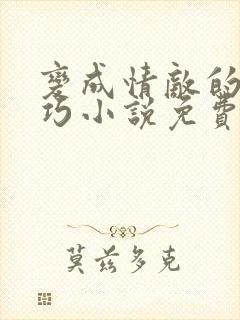 變成情敵的
巧小說免費
莫茲多克